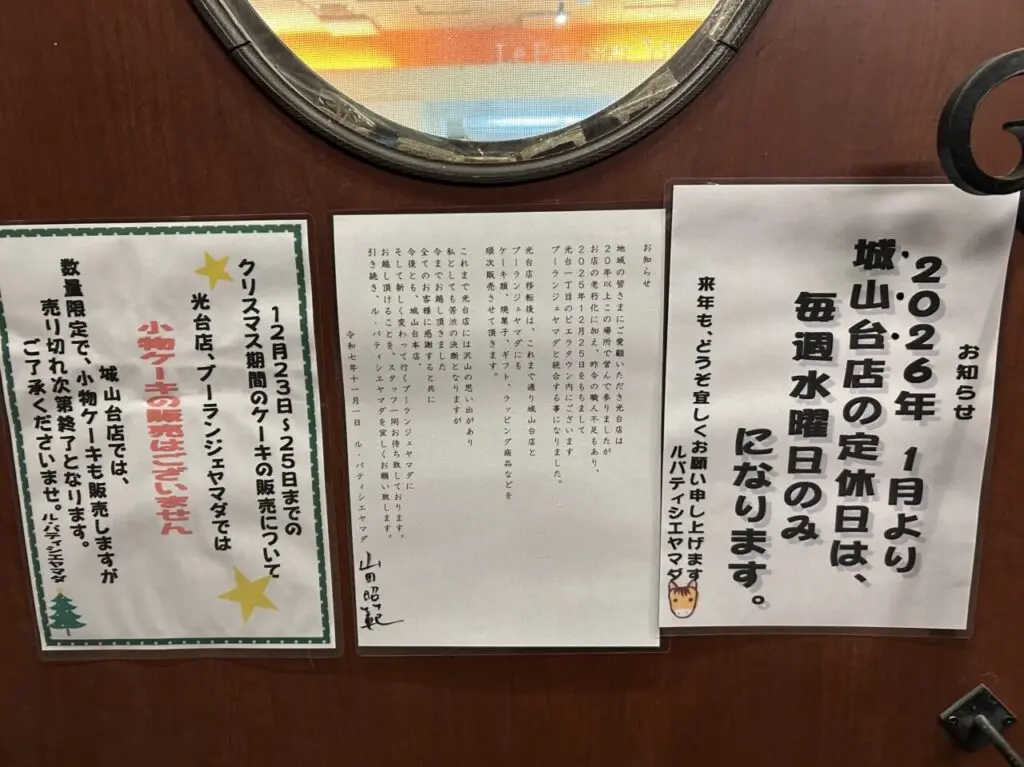 お知らせ
2026年 1月より
城山台店の定休日は、
毎週水曜日のみ
になります。
来年も、どうぞ宜しくお願い申し上げます
ルパティシエヤマダ
お知らせ
地域の皆さまにご愛顧いただき光台店は
20年以上この場所で営んで参りましたが
お店の老朽化に加え、昨今の職人不足もあり、
2025年12月25日をもちまして
光台一丁目のピエラタウン内にございます
ブーランジェヤマダと統合する事になりました。
光台店移転後は、これまで通り城山台店と
ブーランジェヤマダにも
ケーキ類、焼菓子、ギフト、ラッピング商品などを
順次販売させて頂きます。
これまで光台店には沢山の思い出があり
私としても苦渋の決断となりますが
今までお越し頂きました
全てのお客様に感謝すると共に
今後とも、城山台本店、
そして新しく変わって行くブーランジェヤマダに
お越し頂けることを、スタッフ一同お待ち致しております。
引き続き、ル・パティシエヤマダを宜しくお願い致します。
令和七年十一月一日 ル・パティシエヤマダ
山田昭範
12月23日~25日までの
クリスマス期間のケーキの販売について
光台店、ブーランジェヤマダでは
小物ケーキの販売はございません
城山台店では、
数量限定で、小物ケーキも販売しますが
売り切れ次第終了となります。
ご了承くださいませ。
ル・パティシエヤマダ